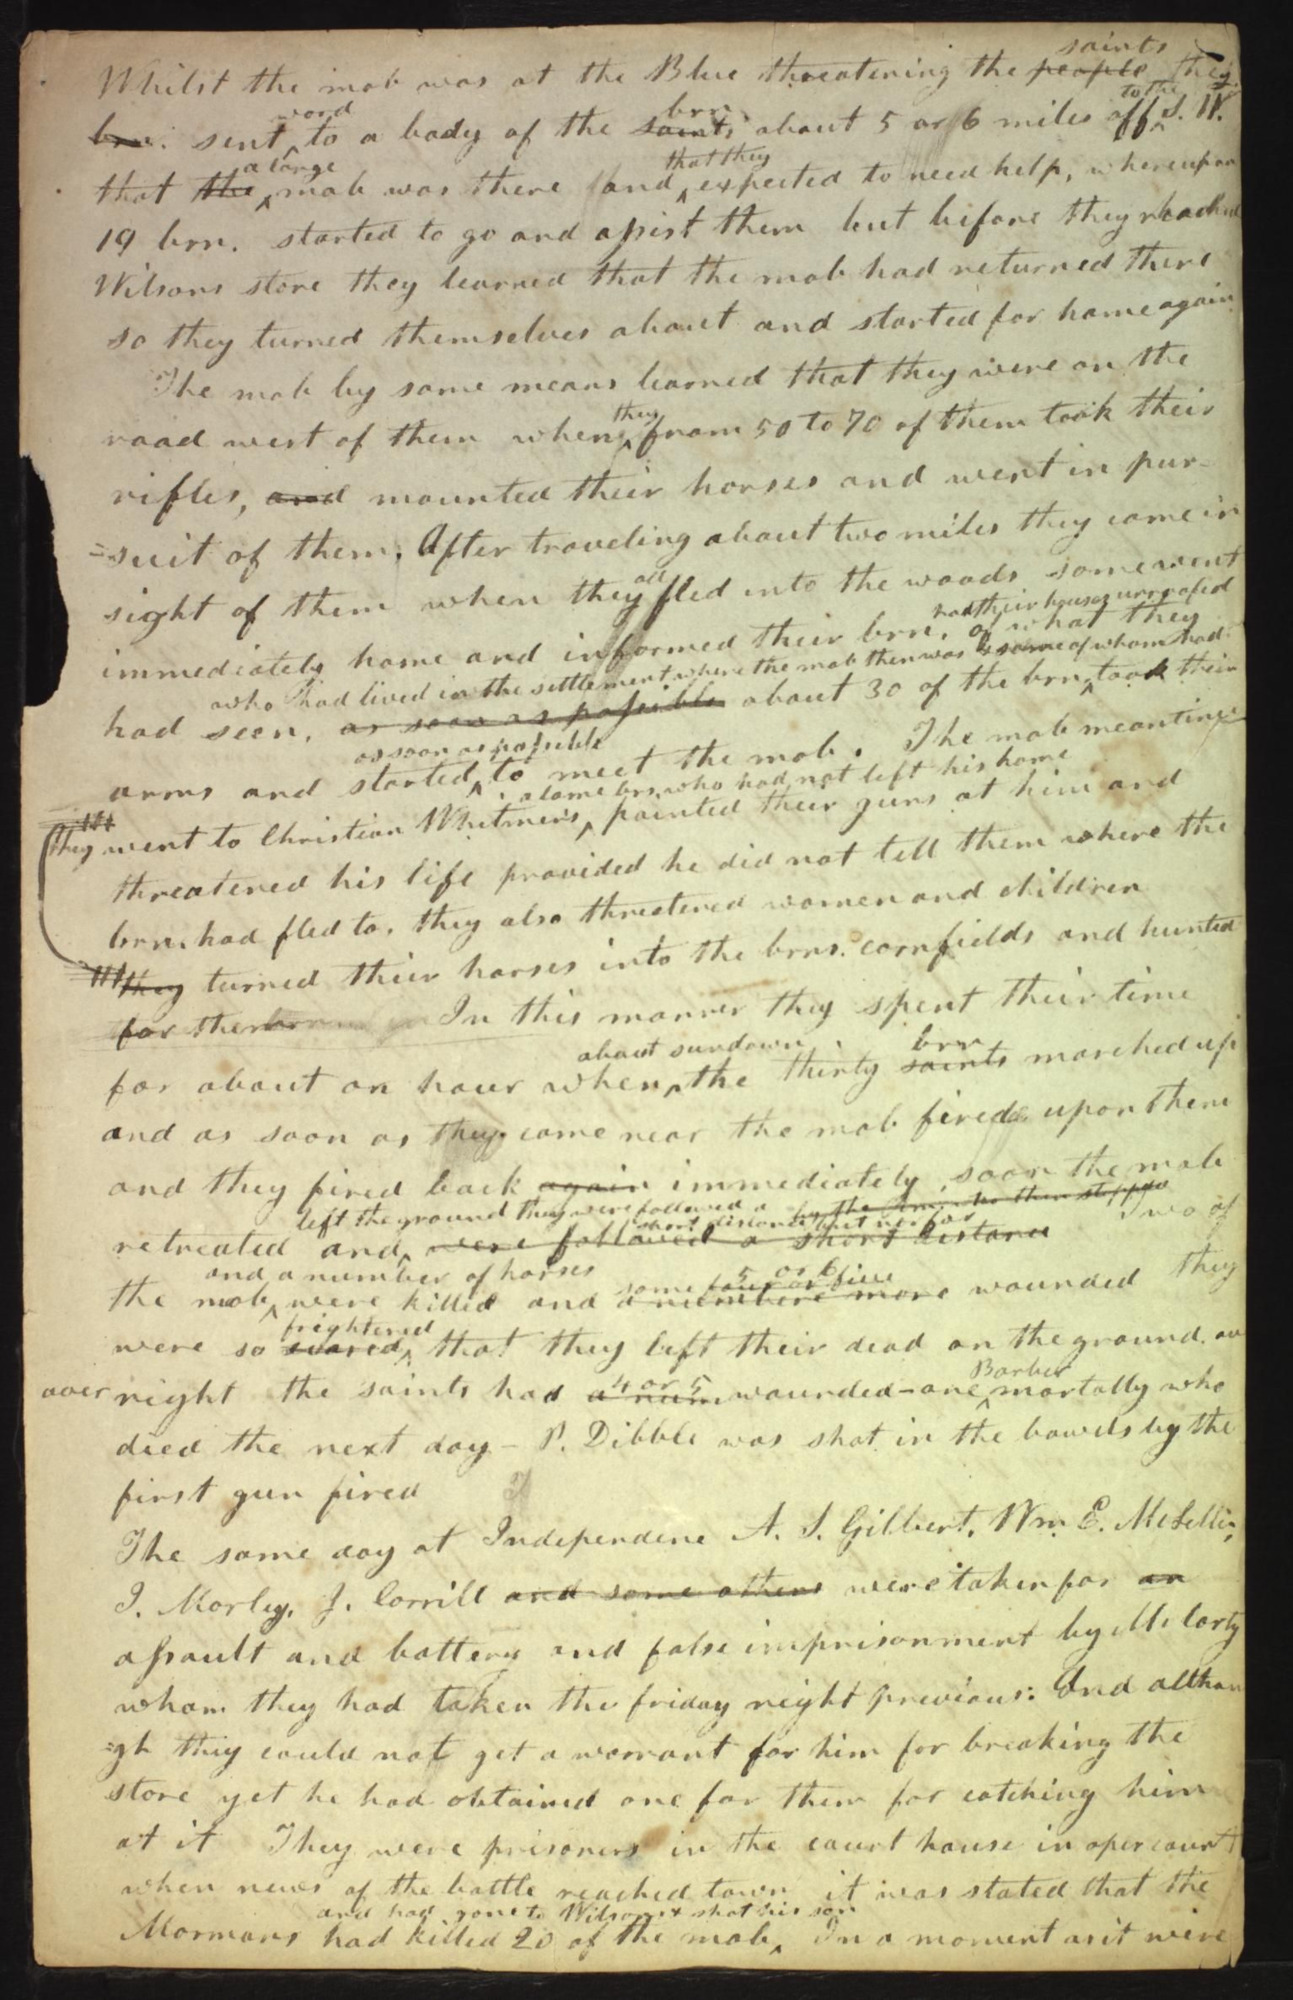 saints
Whilst the mob was at the Blue threatening the people they
word brn to the
brn. sent to a body of the saints about 5 or 6 miles off S. W.
a large that they
that the mob was there and expected to need help, whereupon
19 brn. started to go and assist them but before they reached
Wilsons store they learned that the mob had returned there
so they turned themselves about and started for home again
The mob by some means learned that they were on the
they
road west of them when from 50 to 70 of them took their
rifles, and mounted their horses and went in pur-
=suit of them. After traveling about two miles they came in
all
sight of them when they fled into the woods some went
had their houses unroofed
immediately home and informed their brn. of what they
who had lived in the settlement where the mob then was & some of whom had
had seen, as soon as possible about 30 of the brn, took their
as soon as possible
arms and started to meet the mob. The mob meantime
a lame bro. who had not left his home
they went to Christian Whitmer's, pointed their guns at him and
threatened his life provided he did not tell them where the
brn. had fled to, they also threatened women and children
they turned their horses into the brns. cornfields and hunted
for their In this manner they spent their time
about sundown brn
for about an hour when the thirty saints marched up
and as soon as they came near the mob fired upon them
and they fired back again immediately, soon the mob
left the ground they were followed a by the who then stopped
short distance but not far
retreated and were followed a short distance Two of
and a number of horses some four or five 5 or 6
the mob were killed and a number more wounded they
frightened
were so scared, that they left their dead on the ground. ov
4 or 5 Barber
over night the saints had a num wounded – one mortally who
died the next day – P. Dibble was shot in the bowels by the
first gun fired T
The same day at Independence A. S. Gilbert, Wm. E. McLellin,
I. Morley, J. Corrill and some others were taken for an
assault and battery and false imprisonment by McCarty
whom they had taken the friday night previous: And althou
=gh they could not get a warrant for him for breaking the
store yet he had obtained one for them for catching him
at it They were prisoners in the court house in open court
when news of the battle reached town it was stated that the
and had gone to Wilsons & shot his son
Mormons had killed 20 of the mob, In a moment as it were